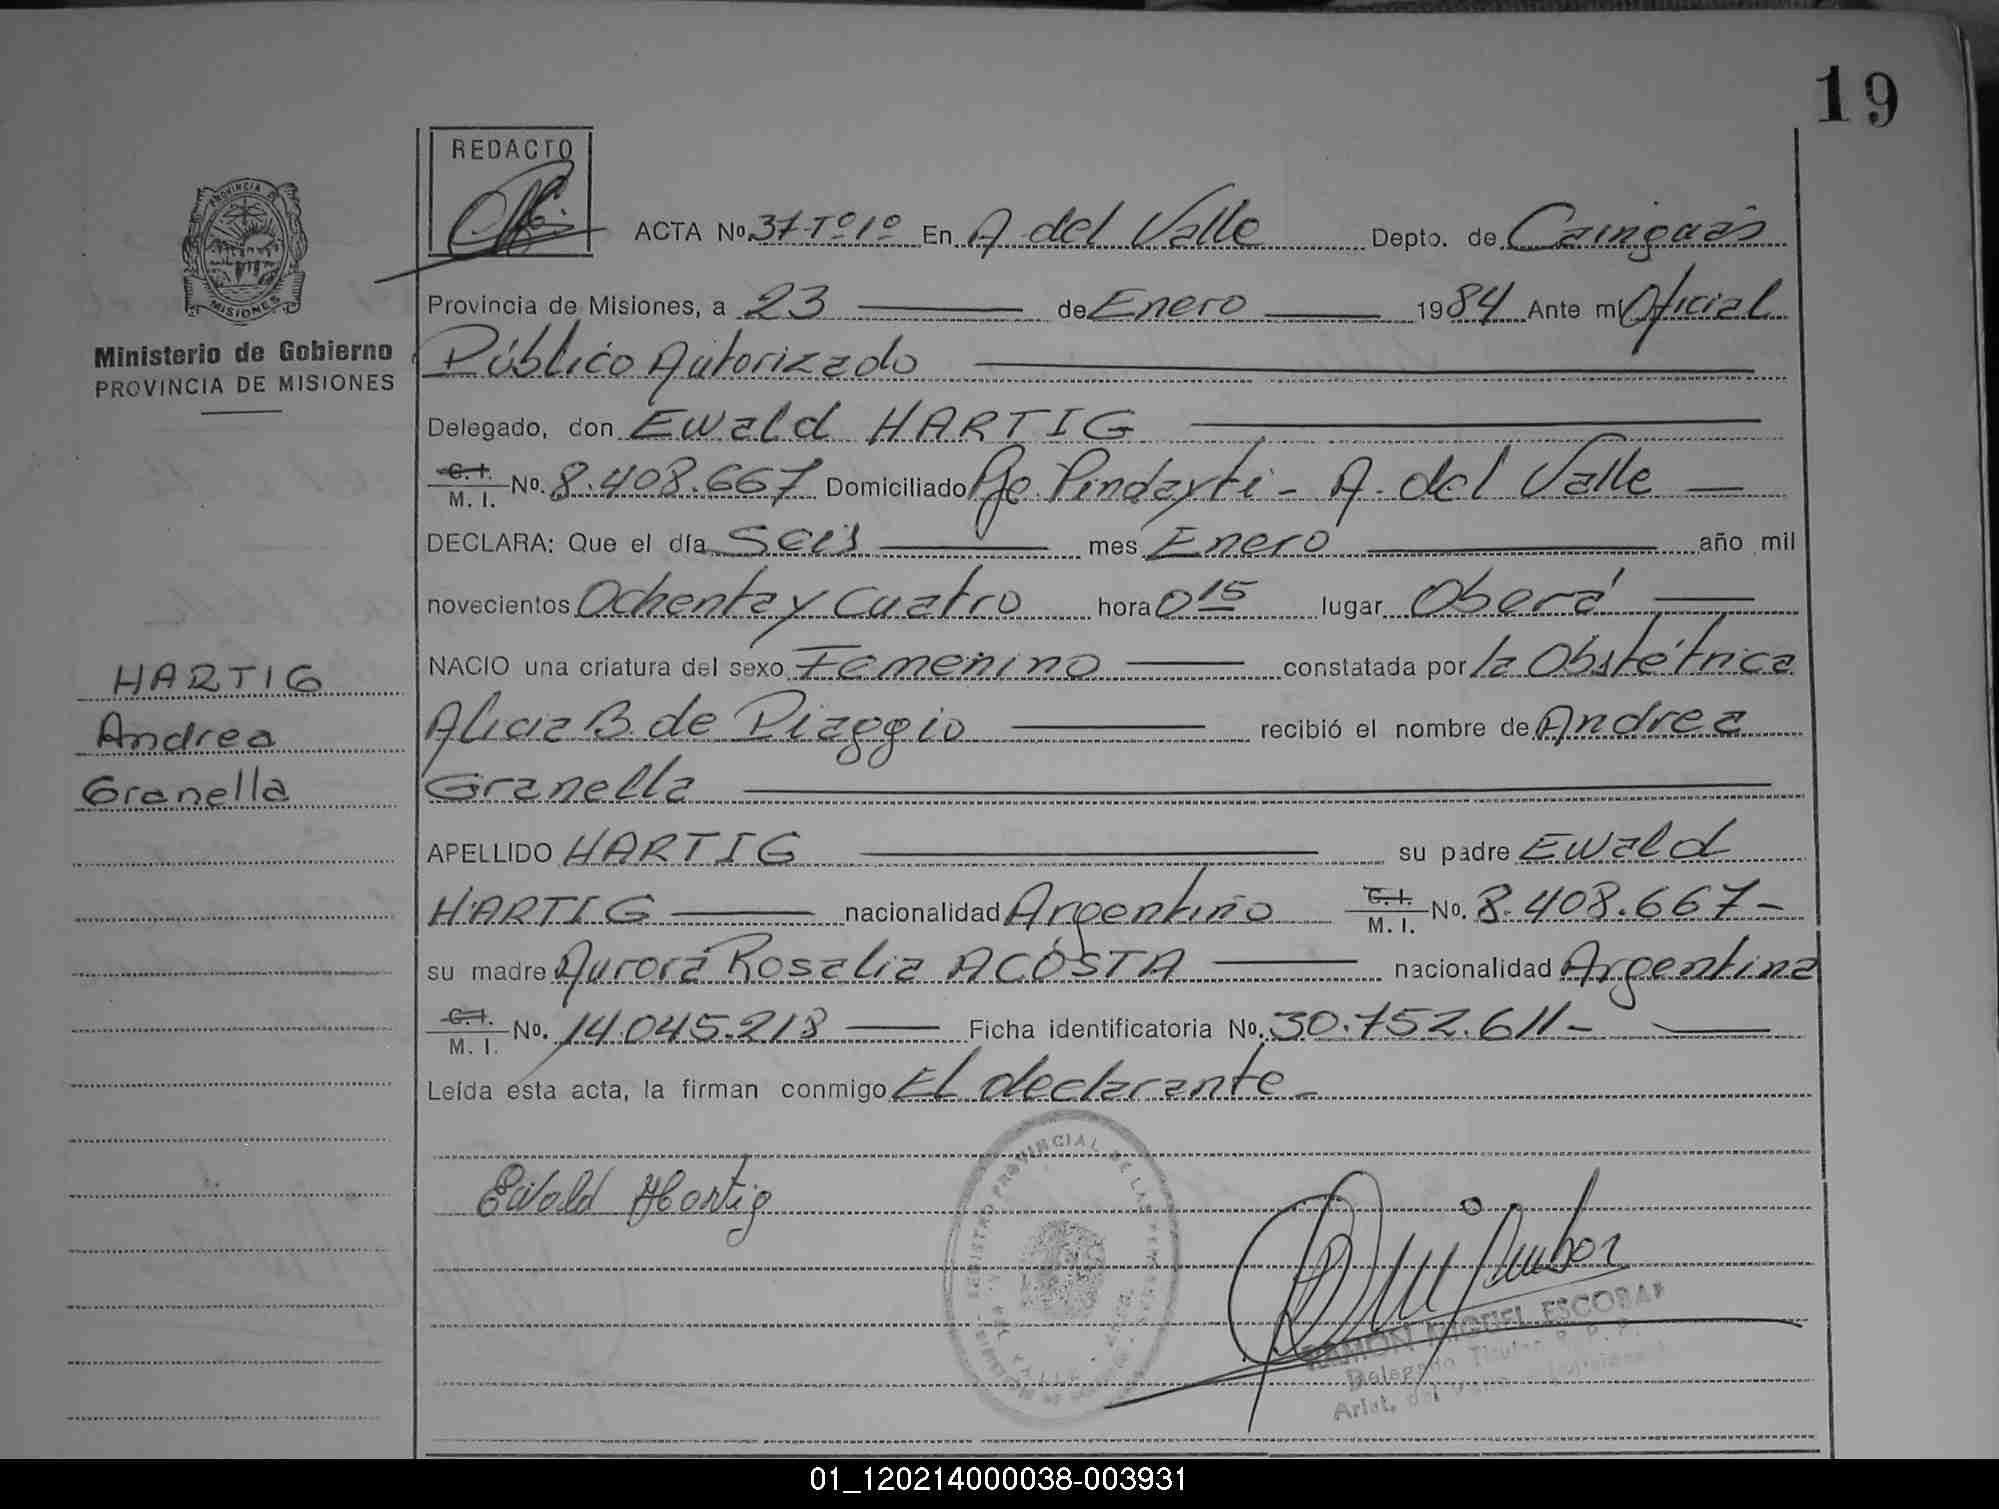 19
REDACTO
ACTA No. 37-Tº1º En A. del Valle Depto. de Cainguás
PROVINCIA DE
MISIONES
Provincia de Misiones, a 23 de Enero 1984 Ante mí Oficial
Ministerio de Gobierno
PROVINCIA DE MISIONES
Público Autorizado
Delegado, don Ewald HARTIG
C. I.
M. I. No. 8.408.667 Domiciliado Pje. Pindayti - A. del Valle
DECLARA: Que el día Seis mes Enero año mil
novecientos Ochenta y Cuatro hora 0 15 lugar Oberá
NACIO una criatura del sexo Femenino constatada por la Obstétrica
Alicia B. de Piaggio recibió el nombre de Andrea
Granella
HARTIG
Andrea
Granella
APELLIDO HARTIG su padre Ewald
HARTIG nacionalidad Argentino C. I.
M. I. No. 8.408.667-
su madre Aurora Rosalia ACOSTA nacionalidad Argentina
C. I.
M. I. No. 14.045.218 Ficha identificatoria No. 30.752.611-
Leída esta acta, la firman conmigo El declarante-
Ewald Hartig
REGISTRO PROVINCIAL DE LAS PERSONAS
RAMON MIGUEL ESCOBAR
Delegado Titular R. P. P.
Arist. del Valle
01_120214000038-003931